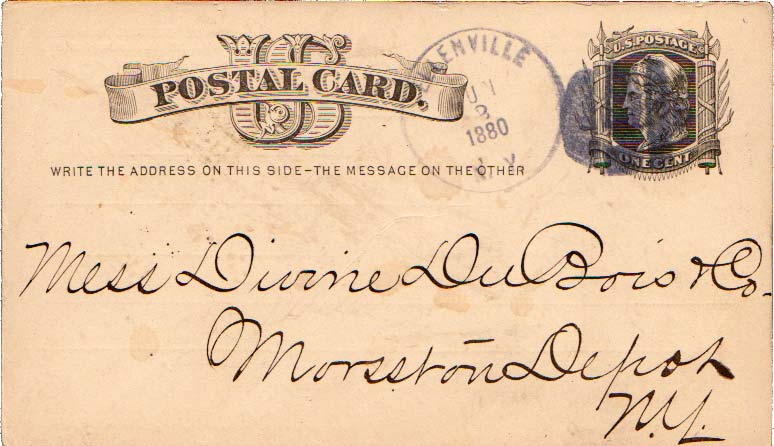 U.S.
POSTAL CARD.
WRITE THE ADDRESS ON THIS SIDE-THE MESSAGE ON THE OTHER
ELLENVILLE
JUN
3
1880
N.Y.
U.S. POSTAGE
ONE CENT
Mess Divine DuBois & Co.
Morsston Depot
N.Y.